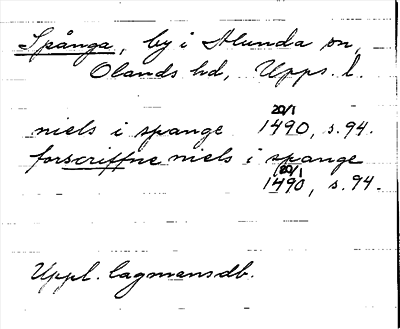 Spånga, by i Alunda sn,
Olands hd, Upps. l.
niels i spange 20/1 1490, s. 94.
forscriffne niels i spange
(20/1 1490, s. 94.
Uppl. lagmansdb.